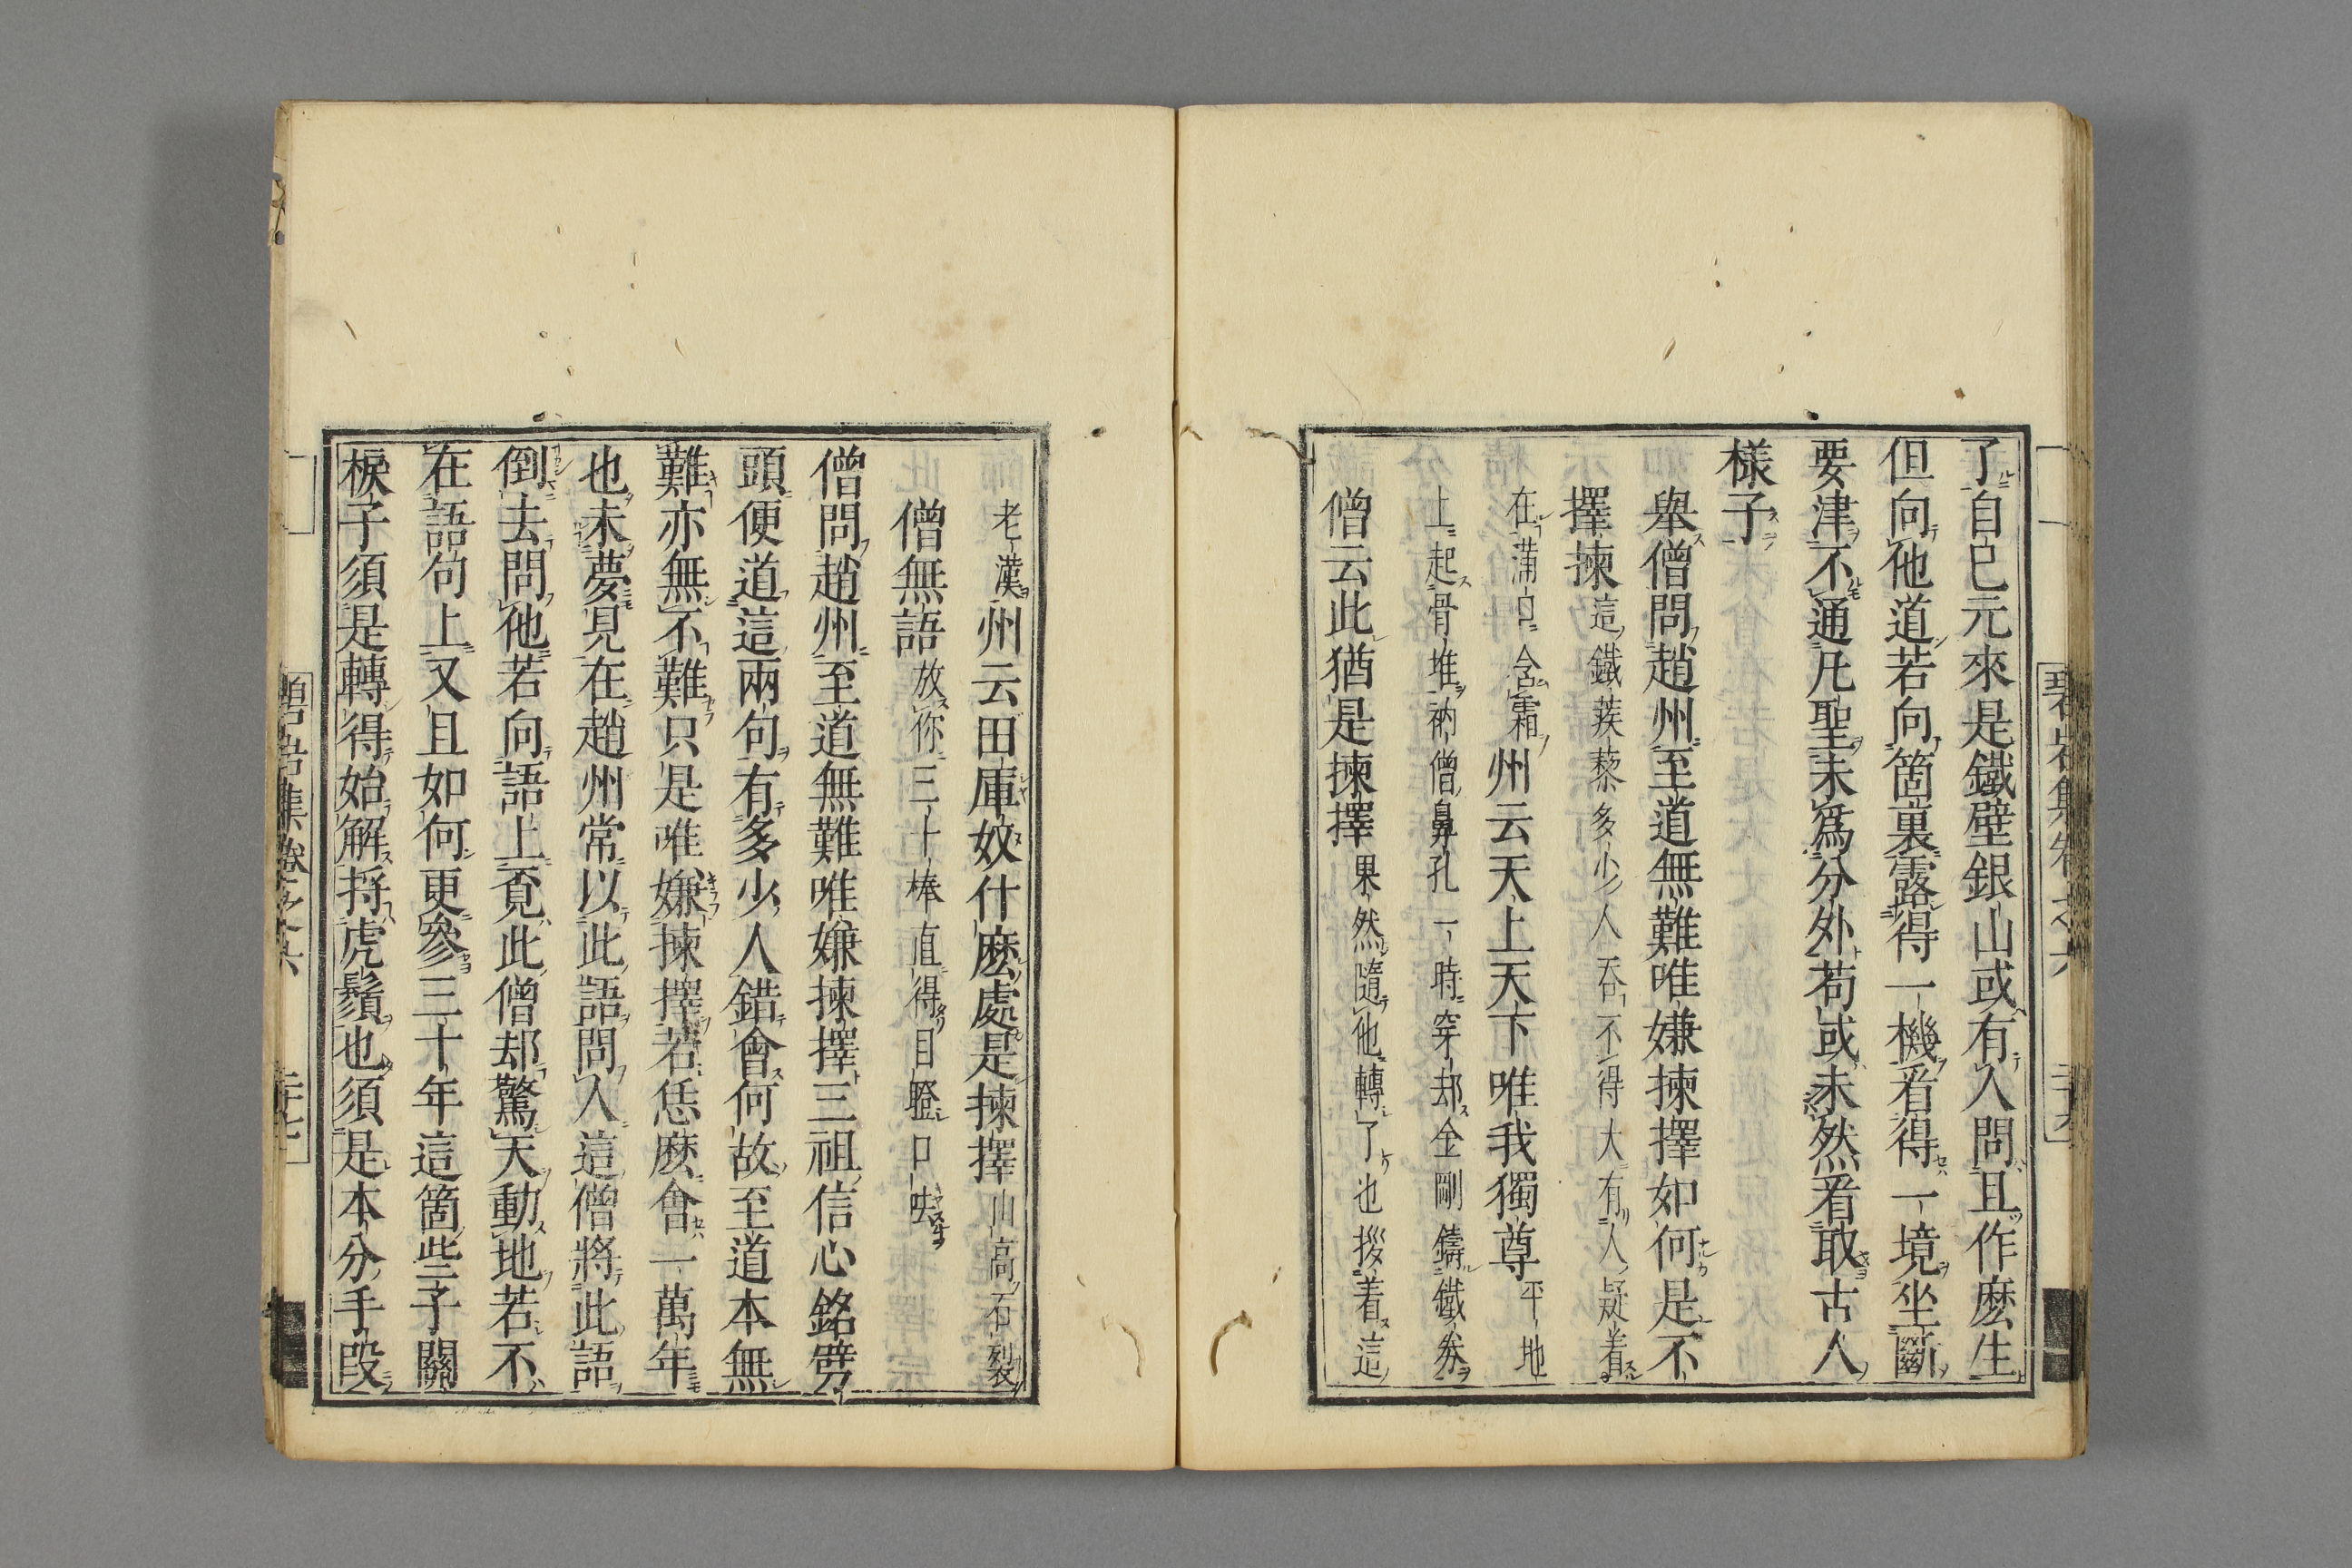 碧岩集卷之六
了自己元來是鐵壁銀山或有人問且作麽生
但向他道若向箇裏露得一機看得一境坐斷
要津不通凡聖未爲分外苟或未然看取古人
樣子
擧僧問趙州至道無難唯嫌揀擇如何是不
擇揀這鐵蒺藜多少人吞不得大有人疑着
在滿口含霜州云天上天下唯我獨尊平地
上起骨堆衲僧鼻孔一時穿却金剛鑄鐵券
僧云此猶是揀擇果然隨他轉了也拶着這
老漢州云田庫奴什麽處是揀擇山高石裂
僧無語放你三十棒直得目瞪口呿
僧問趙州至道無難唯嫌揀擇三祖信心銘劈
頭便道這兩句有多少人錯會何故至道本無
難亦無不難只是唯嫌揀擇若恁麽會一萬年
也未夢見在趙州常以此語問人這僧將此語
倒去問他若向語上覓此僧却驚天動地若不
在語句上又且如何更參三十年這箇些子關
棙子須是轉得始解捋虎鬚也須是本分手段
碧岩集卷之六 二十七